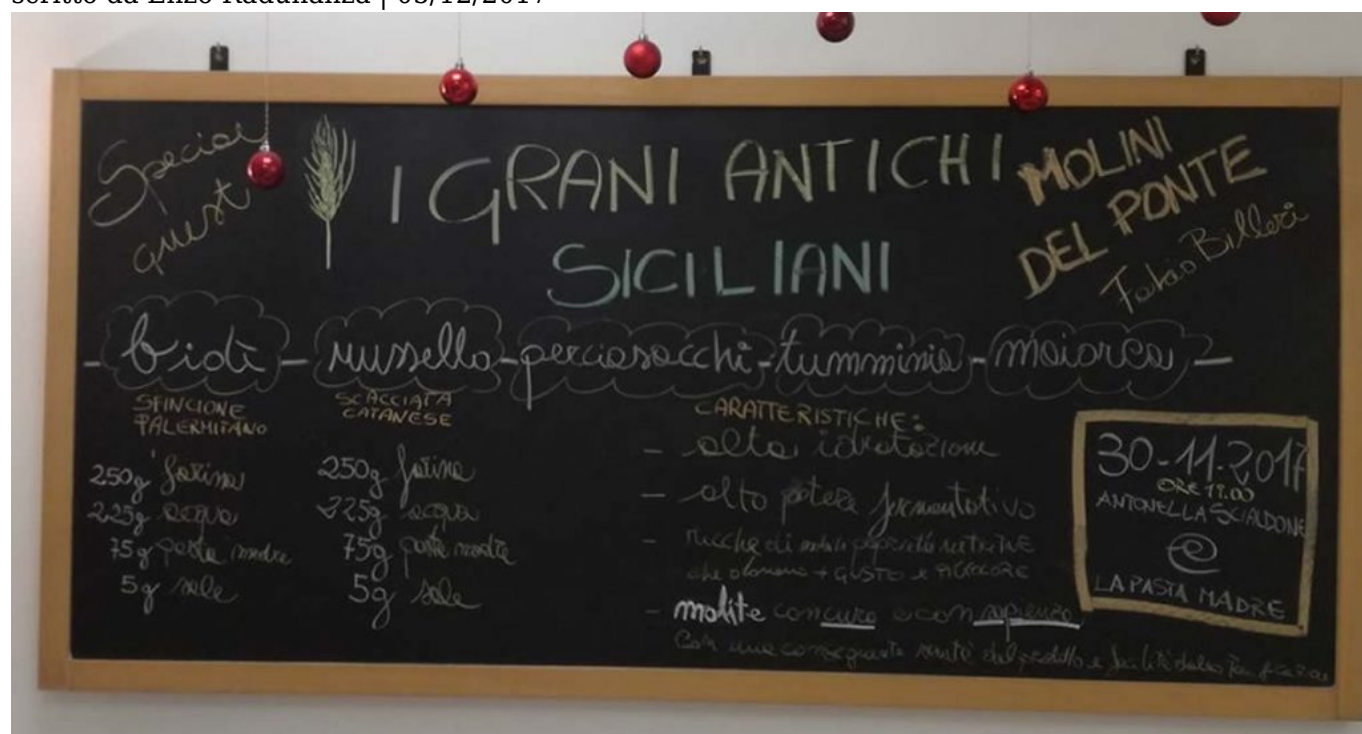 scritto da Enzo Radunanza | 05/12/2017
Special
guest
I GRANI ANTICHI
SICILIANI
MOLINI
DEL PONTE
Fabio Billeri
- bidì - russello - perciasacchi - tumminia - maiorca -
SFINCIONE
PALERMITANO
250g farina
225g acqua
75g pasta madre
5g sale
SCACCIATA
CATANESE
250g farina
225g acqua
75g pasta madre
5g sale
CARATTERISTICHE:
- alta idratazione
- alto potere fermentativo
- Ricche di proprietà nutritive
che donano + GUSTO e
- molite con cura e con sapienza
Con una conseguente del prodotto e
30-11-2017
ORE 19.00
ANTONELLA SCIALDONE
e
LA PASTA MADRE